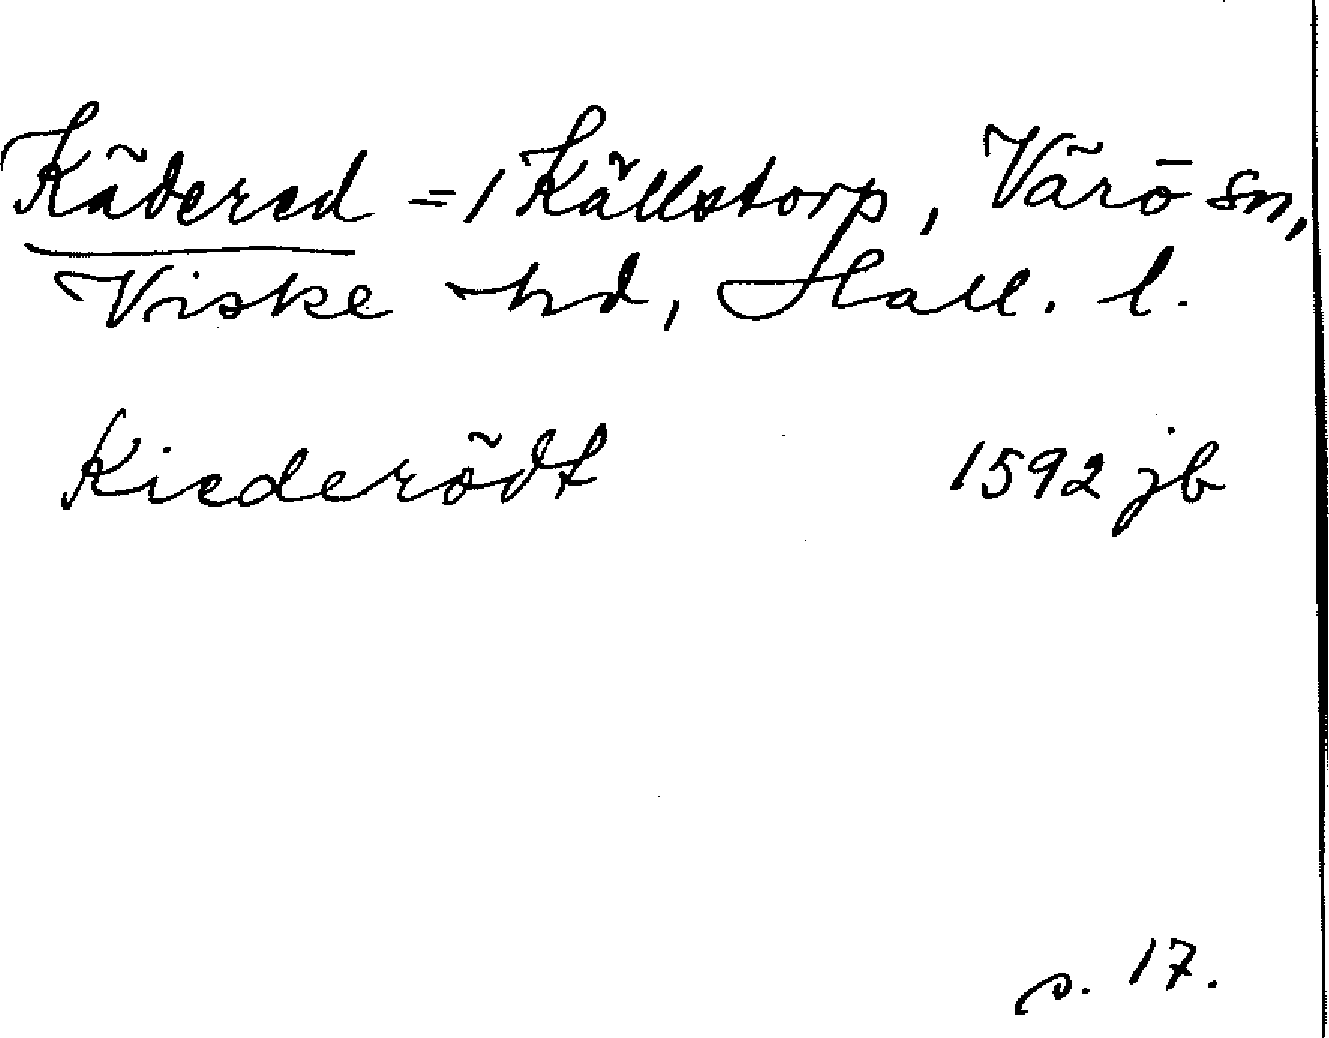 Kädered = 1 Källstorp, Värö sn,
Viske hd, Hall. l.
Kiederödt 1592 jb
s. 17.